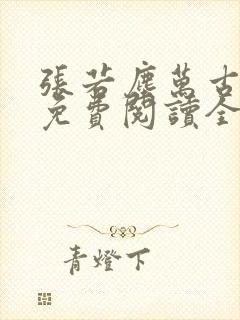 張若塵萬古
免費閱讀全
青燈下